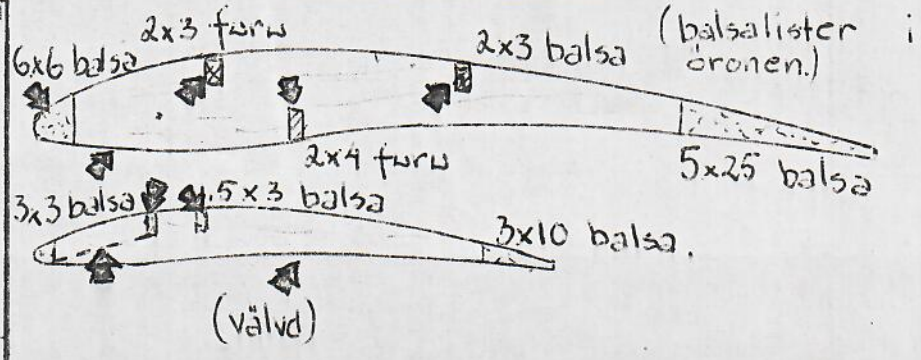 2x3 furu
2x3 balsa
(balsalister i
öronen.)
6x6 balsa
2x4 furu
5x25 balsa
3x3 balsa
1.5x3 balsa
3x10 balsa.
(välvd)